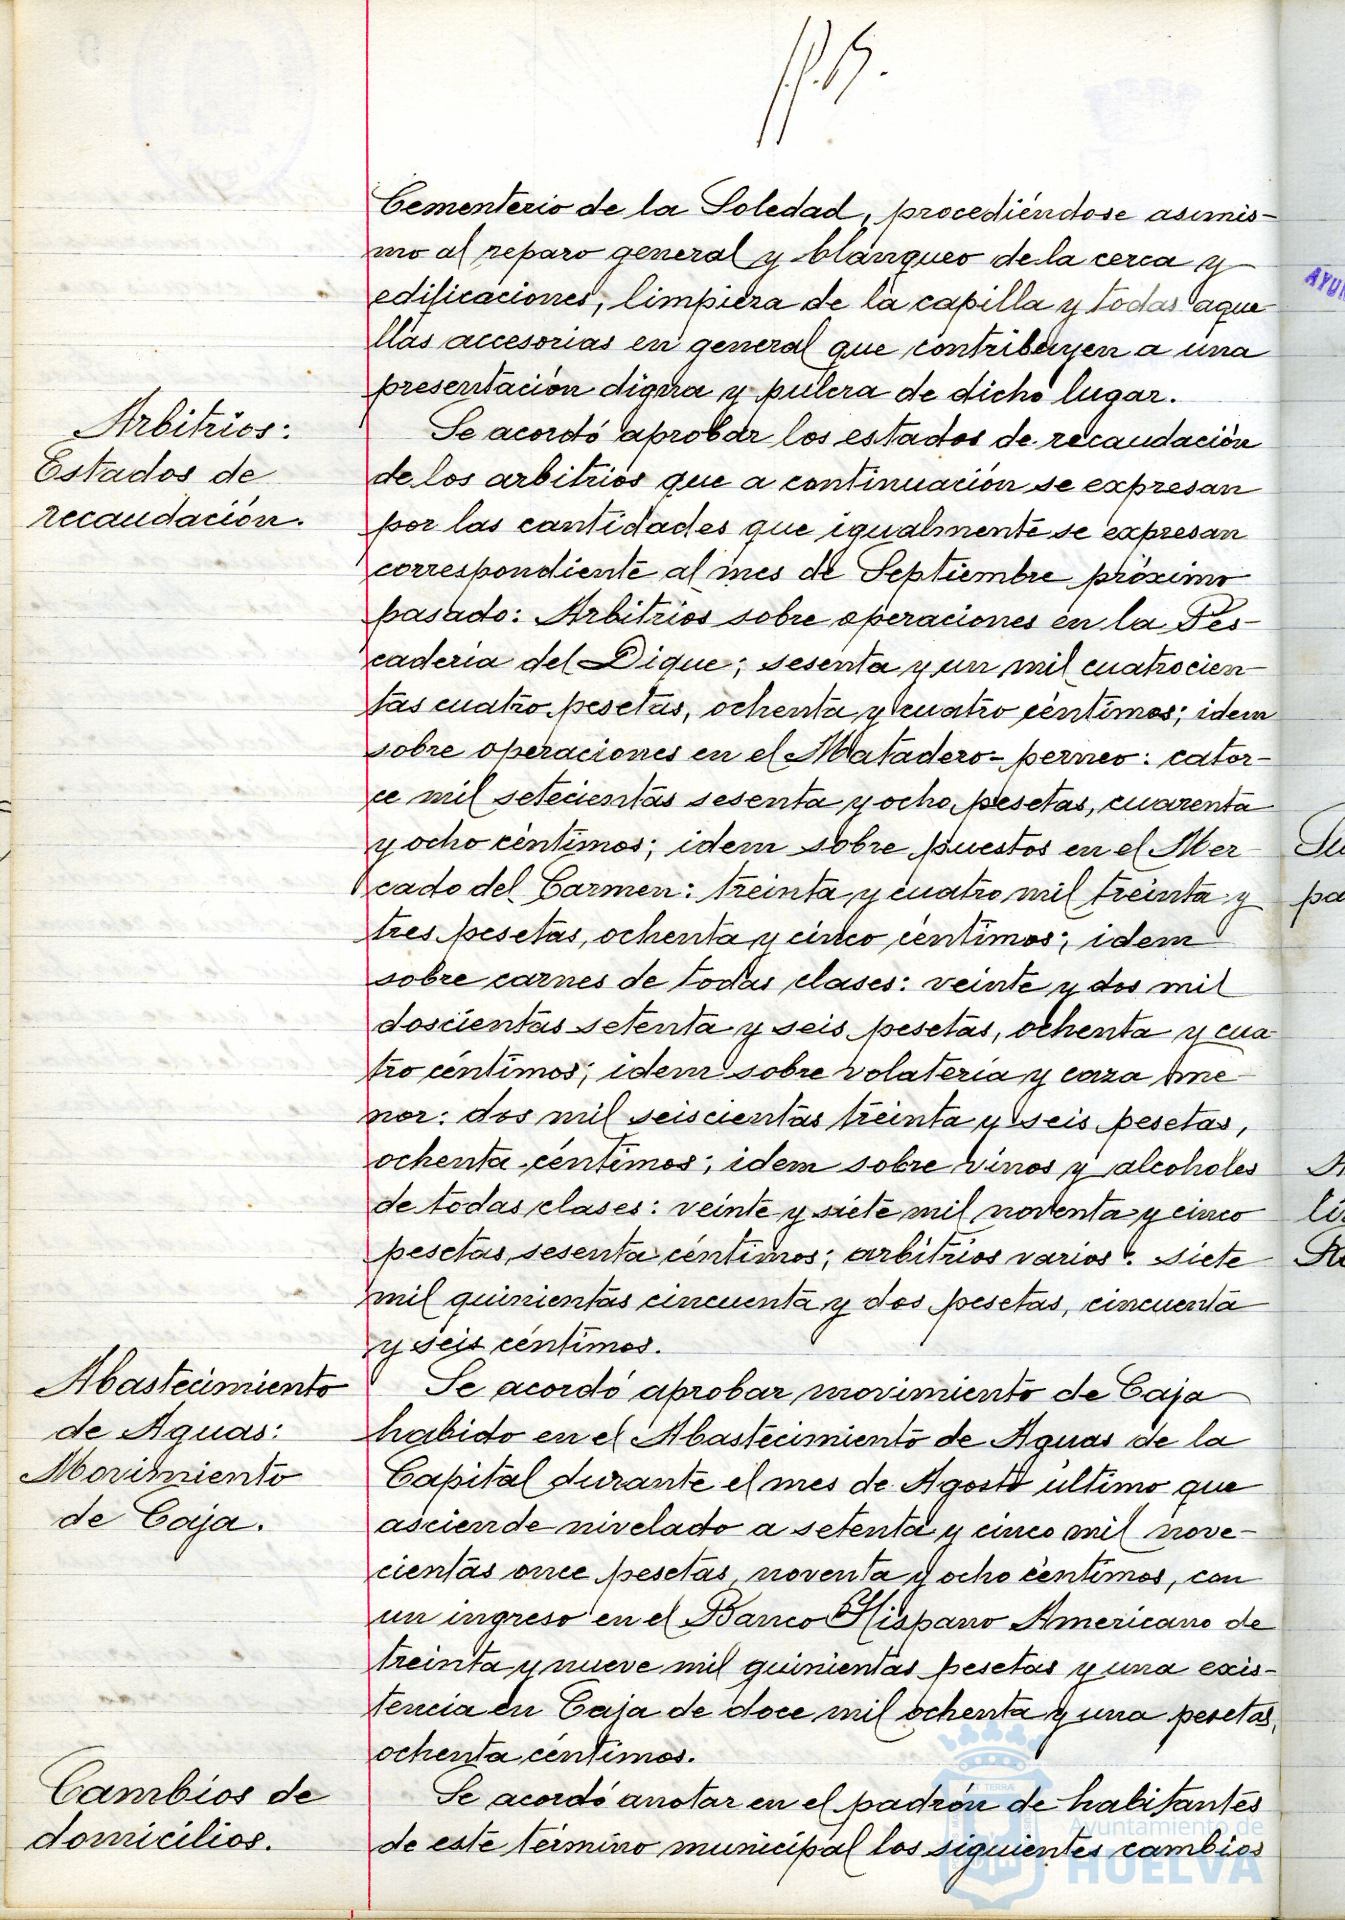 Cementerio de la Soledad, procediéndose asimis-
mo al reparo general y blanqueo de la cerca y
edificaciones, limpieza de la capilla y todas aque
llas accesorias en general que contribuyen a una
presentación digna y pulcra de dicho lugar.
Arbitrios:
Estados de
recaudación.
Se acordó aprobar los estados de recaudación
de los arbitrios que a continuación se expresan
por las cantidades que igualmente se expresan
correspondiente al mes de Septiembre próximo
pasado: Arbitrios sobre operaciones en la Pes-
caderia del Dique; sesenta y un mil cuatrocien-
tas cuatro pesetas, ochenta y cuatro céntimos; idem
sobre operaciones en el Matadero-perneo: cator-
ce mil setecientas sesenta y ocho pesetas, cuarenta
y ocho céntimos; idem sobre puestos en el Mer-
cado del Carmen: treinta y cuatro mil treinta y
tres pesetas, ochenta y cinco céntimos; idem
sobre carnes de todas clases: veinte y dos mil
doscientas setenta y seis pesetas, ochenta y cua
tro céntimos; idem sobre volateria y caza me-
nor: dos mil seiscientas treinta y seis pesetas,
ochenta céntimos; idem sobre vinos y alcoholes
de todas clases: veinte y siete mil noventa y cinco
pesetas sesenta céntimos; arbitrios varios: siete
mil quinientas cincuenta y dos pesetas, cincuenta
y seis céntimos.
Abastecimiento
de Aguas:
Movimiento
de Caja.
Se acordó aprobar movimiento de Caja
habido en el Abastecimiento de Aguas de la
Capital durante el mes de Agosto último que
asciende nivelado a setenta y cinco mil nove-
cientas once pesetas, noventa y ocho céntimos, con
un ingreso en el Banco Hispano Americano de
treinta y nueve mil quinientas pesetas y una exis-
tencia en Caja de doce mil ochenta y una pesetas,
ochenta céntimos.
Cambios de
domicilios.
Se acordó anotar en el padrón de habitantes
de este término municipal los siguientes cambios
Ayuntamiento de
HUELVA